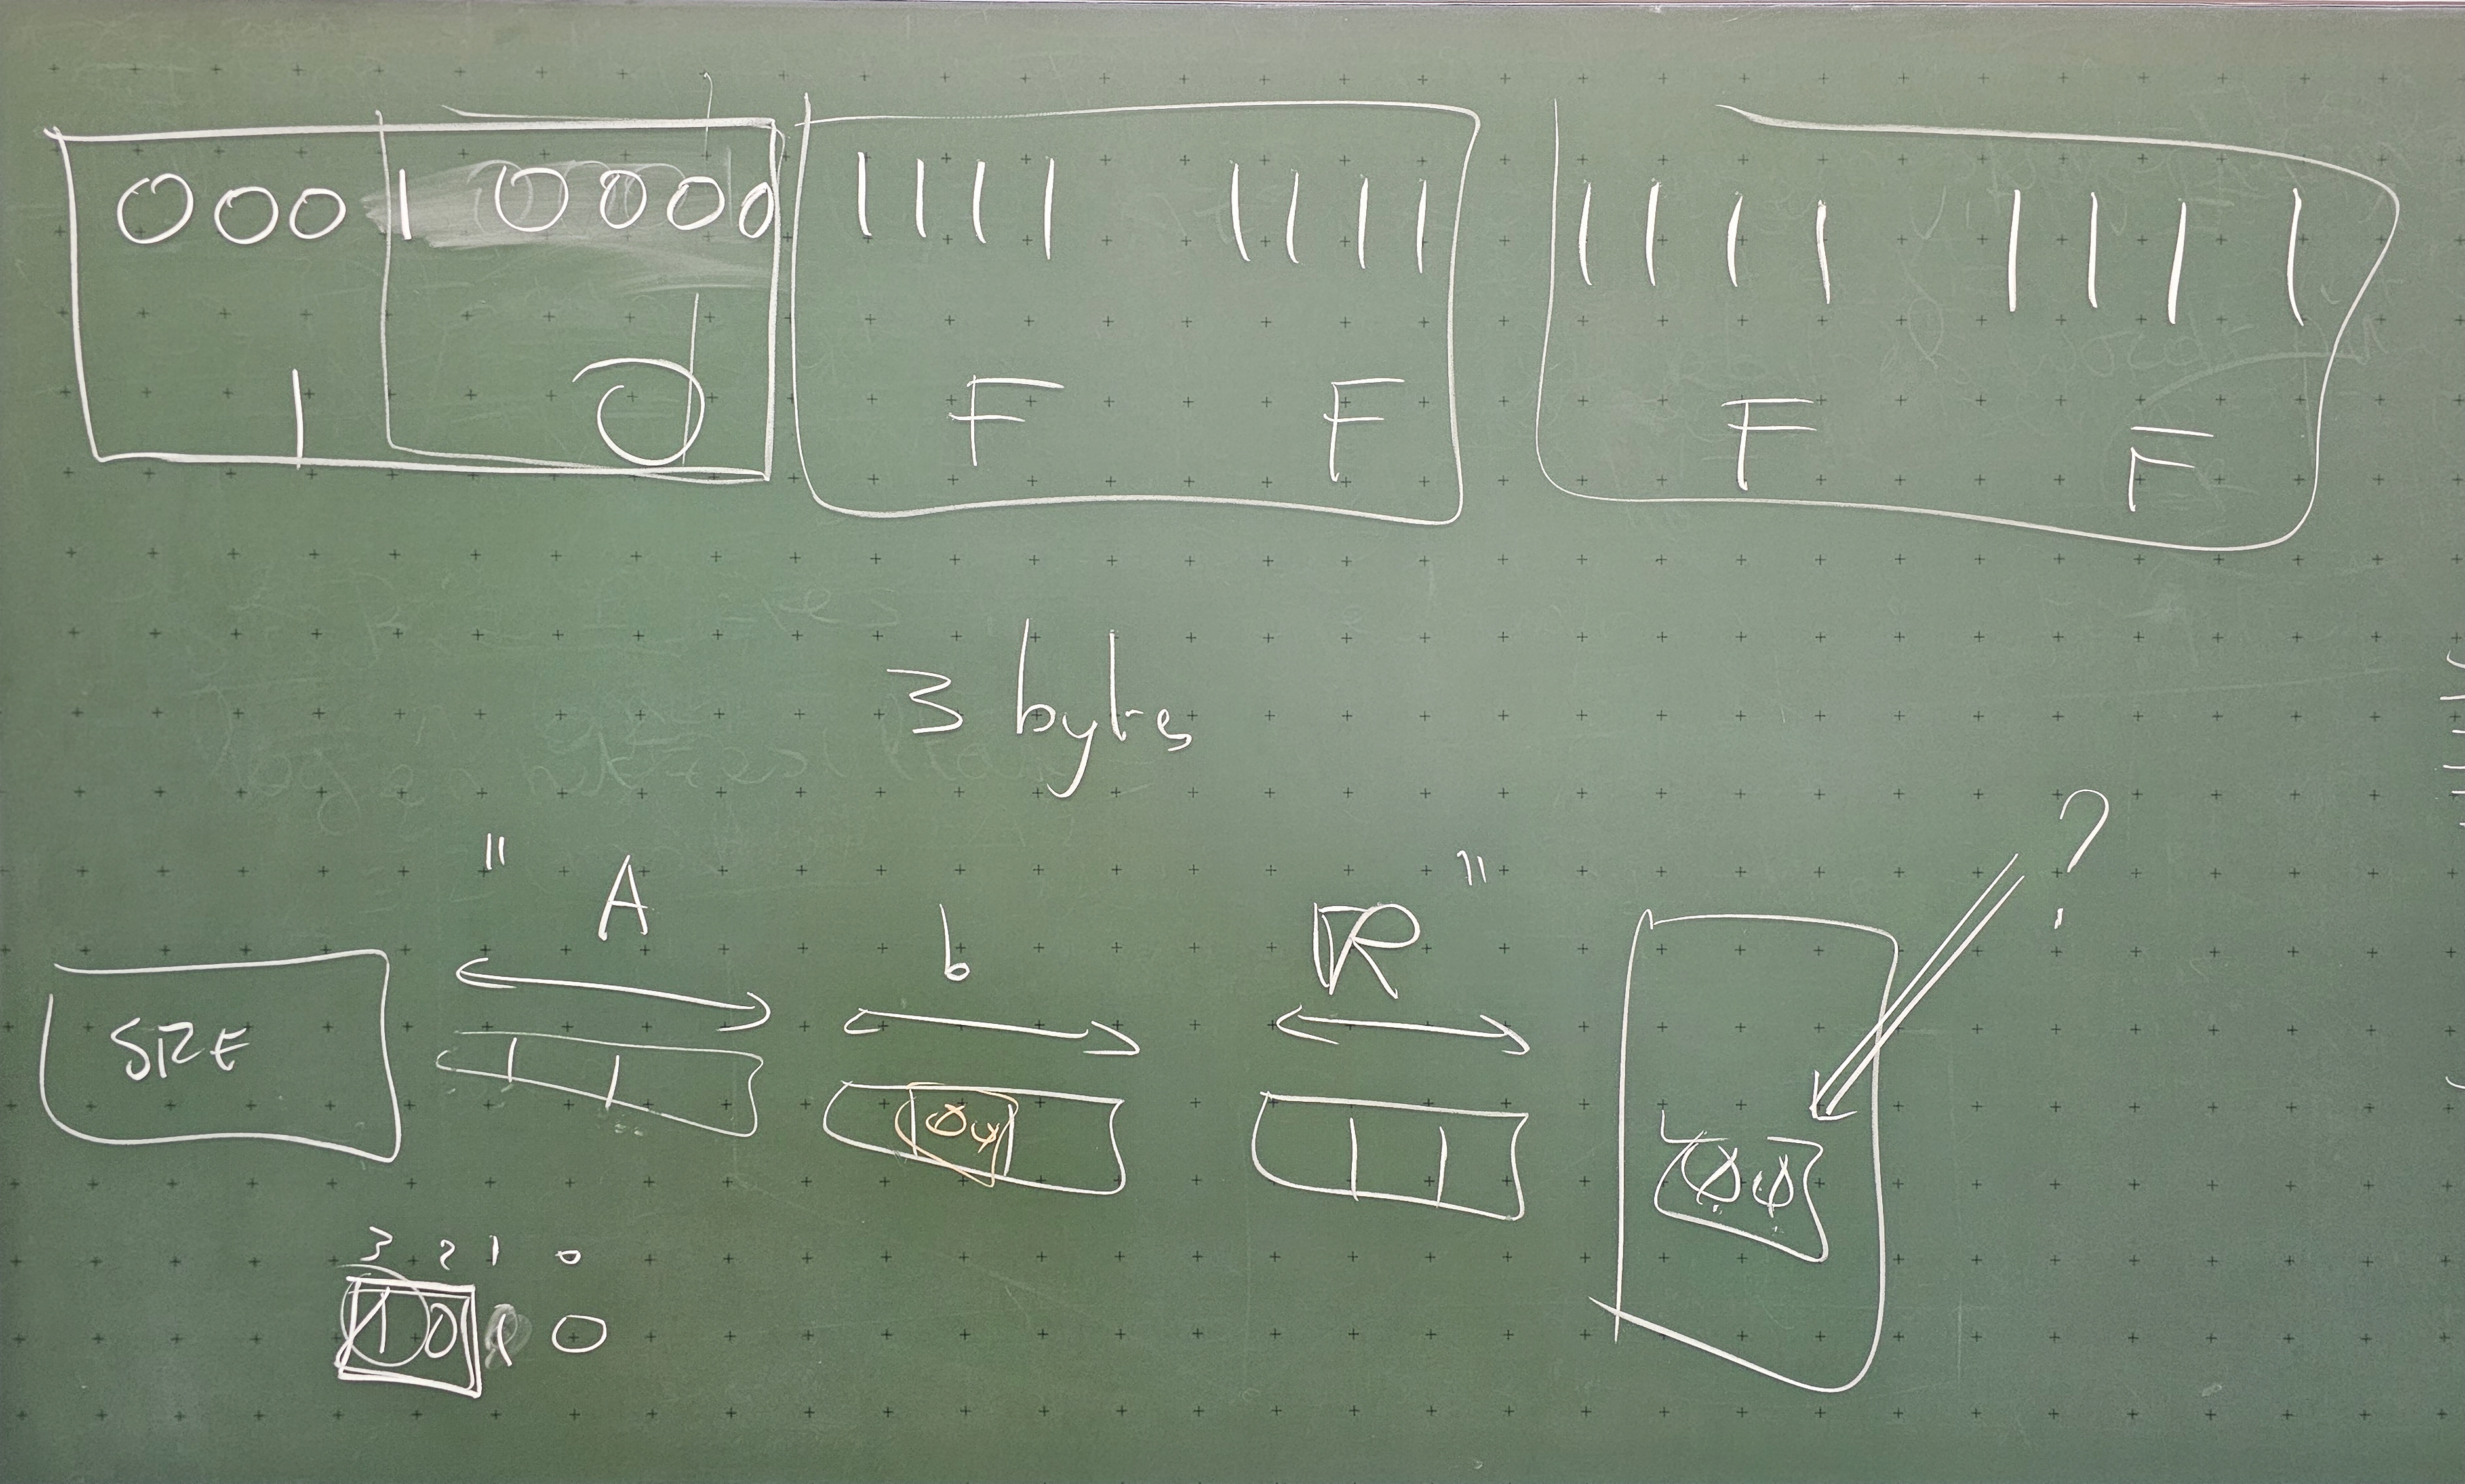 0001 0000 1111 1111 1111 1111
1 0 F F F F
3 bytes
" A b R " ?
SIZE
00 00
3 2 1 0
1 0 1 0